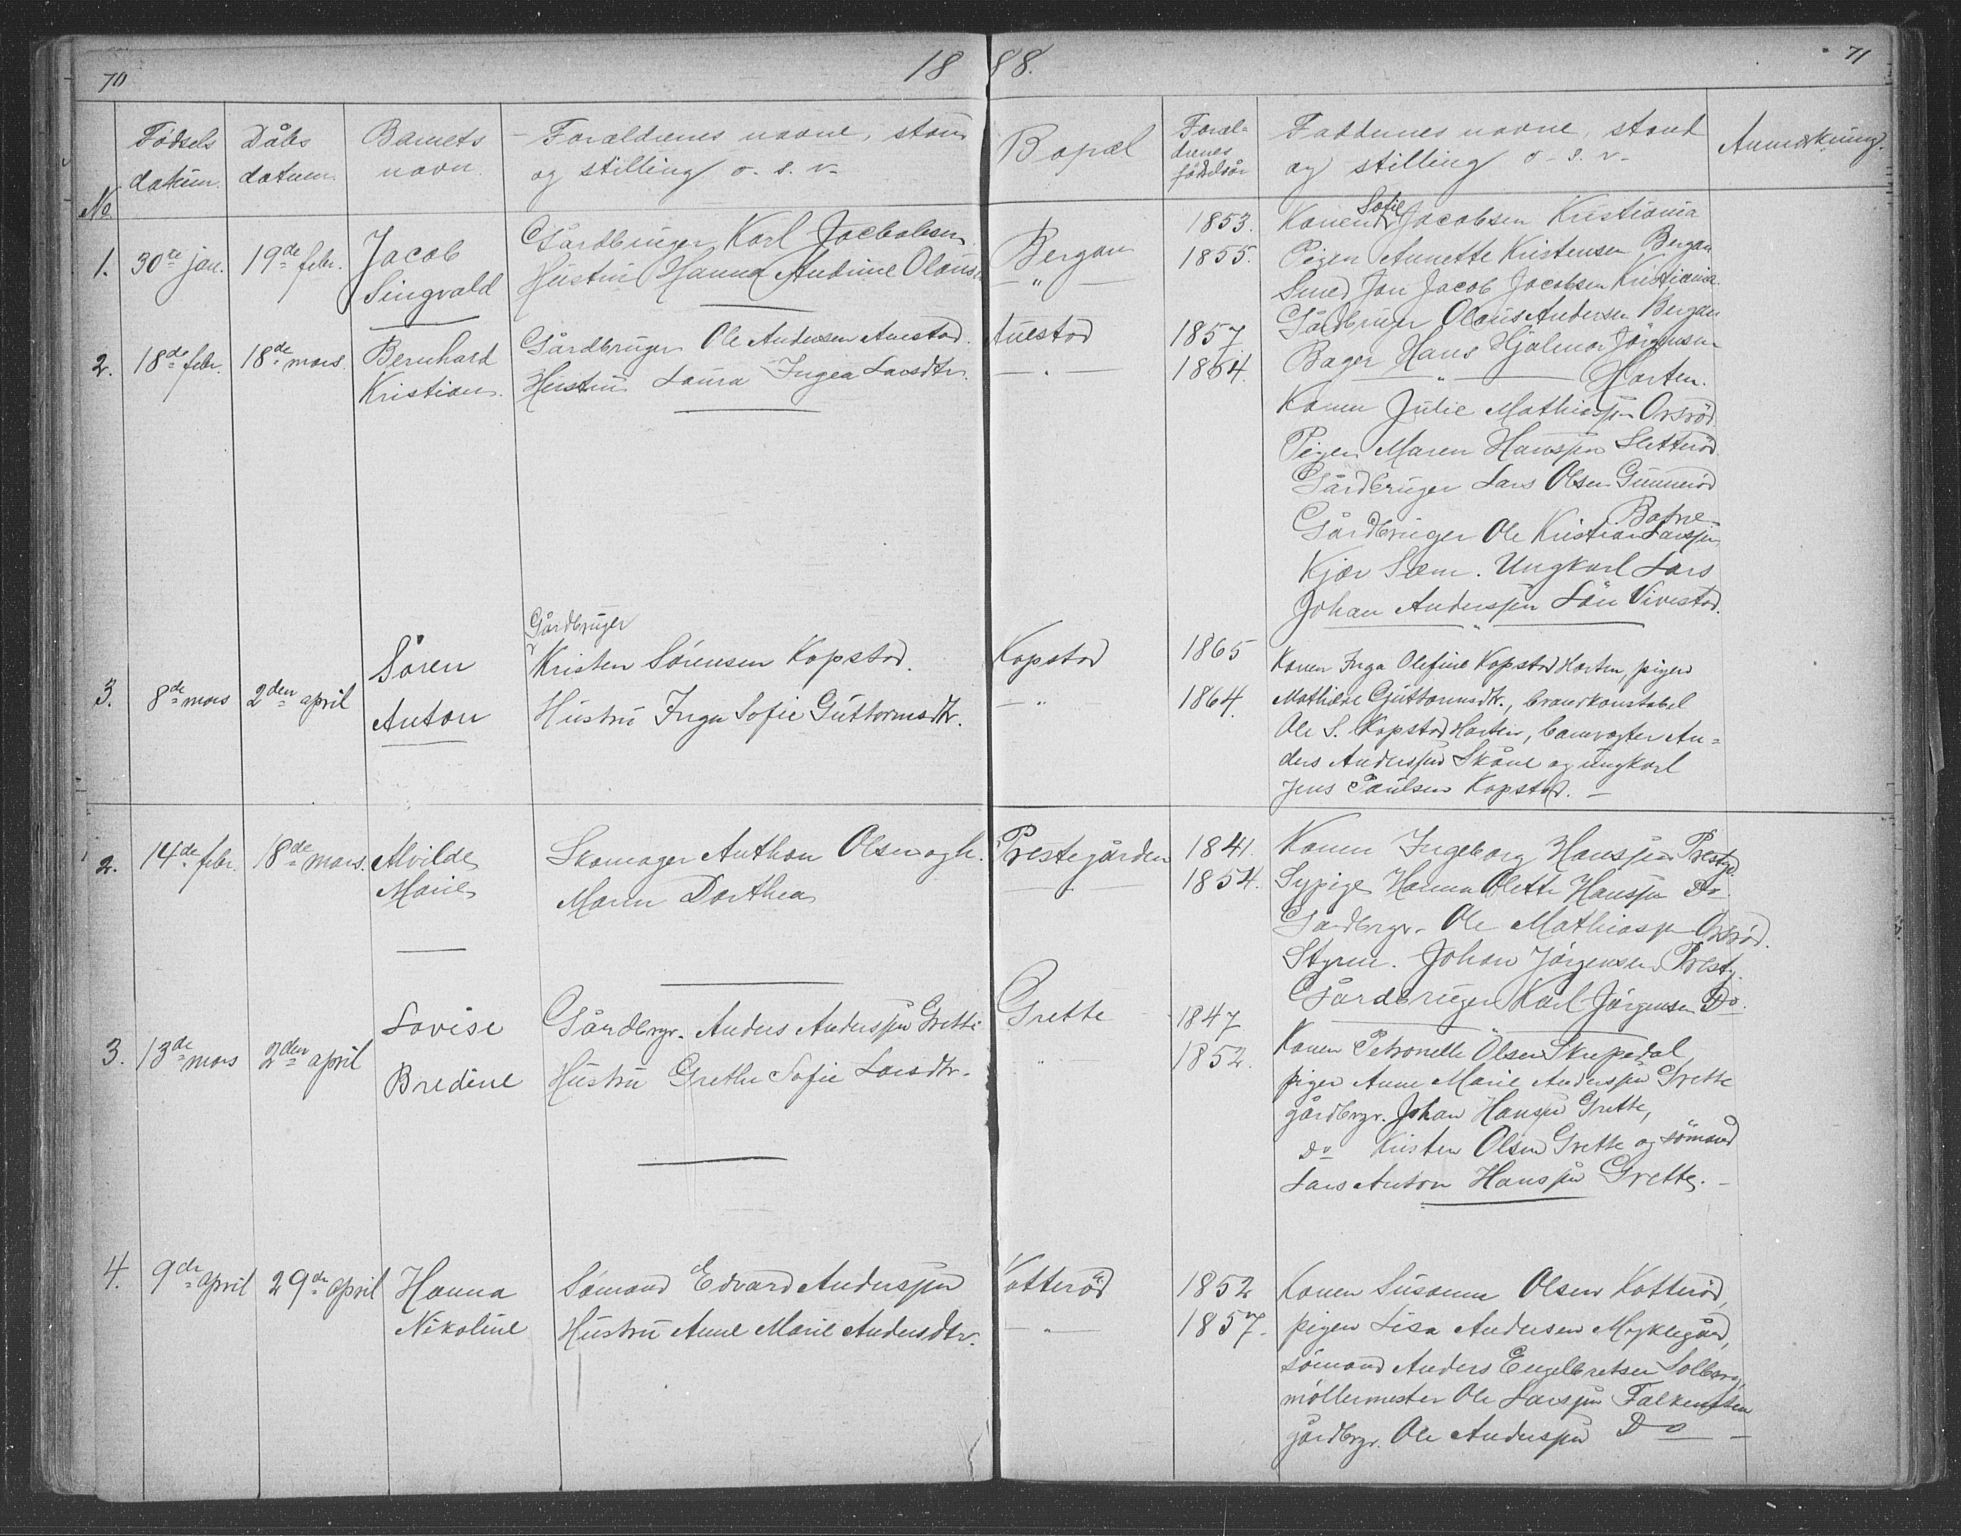 70
1888.
71
No.
Fødsels datum.
Dåbs datum.
Barnets navn.
Forældrenes navne, stand og stilling o. s. v.
Bopæl
Forældrenes fødselsår
Faddernes navne, stand og stilling o. s. v.
Anmærkning.
1. 30te jan. 19de febr. Jacob Singvald
Gårdbruger Karl Jacobsen
Hustru Hanna Andrine Olausd.
Bergan
— " —
1853.
1855.
Konen Sofie Jacobsen Kristiania
Pigen Annette Kristensen Bergan
Smed Jan Jacob Jacobsen Kristiania
Gårdbruger Olaus Andersen Bergan
Bager Hans Hjalmar Jørgensen
— " — Horten.
2. 18de febr. 18de mars. Bernhard Kristian
Gårdbruger Ole Andersen Auestad.
Hustru Laura Ingea Larsdtr.
Auestad
— " —
1857
1864.
Konen Julie Mathiassen Orsrød
Pigen Maren Hanssen Sletterød
Gårdbruger Lars Olsen Gunnerød
Gårdbruger Ole Kristian Larssen
Kjær Sæm. Ungkarl Lars
Johan Anderssen Lån Vivestad.
3. 8de mars 2den april Søren Anton
Gårdbruger
Kristen Sørensen Kopstad.
Hustru Inga Sofie Guttormsdtr.
Kopstad
— "
1865
1864.
Konen Inga Olefine Kopstad Horten, pigen
Mathilde Guttormsdtr., brandkonstabel
Ole S. Kopstad Horten, banevogter An-
ders Anderssen Skåne og ungkarl
Jens Paulsen Kopstad. —
2. 14de febr. 18de mars. Alvilde Marie
Skomager Anthon Olsen og h.
Maren Dorthea
Prestegården
— " —
1841.
1854.
Konen Ingeborg Hanssen Prestg.
Sypige Hanna Olette Hanssen Do.
Gårdbrgr. Ole Mathiassen Orsrød.
Styrm. Johan Jørgensen Prestg.
Gårdbruger Karl Jørgensen Do.
3. 13de mars 2den april Lovise Bredine
Gårdbrgr. Anders Anderssen Grette
Hustru Grethe Sofie Larsdtr.
Grette
"
1847
1852.
Konen Petronelle Olsen Skrepedal,
pigen Anne Marie Anderssen Grette
gårdbrgr. Johan Hanssen Grette,
Do Kristen Olsen Grette og sømand
Lars Anton Hanssen Grette. —
4. 9de april 29de april Hanna Nikoline
Sømand Edvard Anderssen
Hustru Anne Marie Andersdtr.
Kotterød
— " —
1852
1857.
Konen Susanne Olsen Kotterød,
pigen Lisa Andersen Myklegård,
sømand Anders Engelbretsen Solberg,
møllermester Ole Larssen Falkensten
gårdbrgr. Ole Anderssen Do —